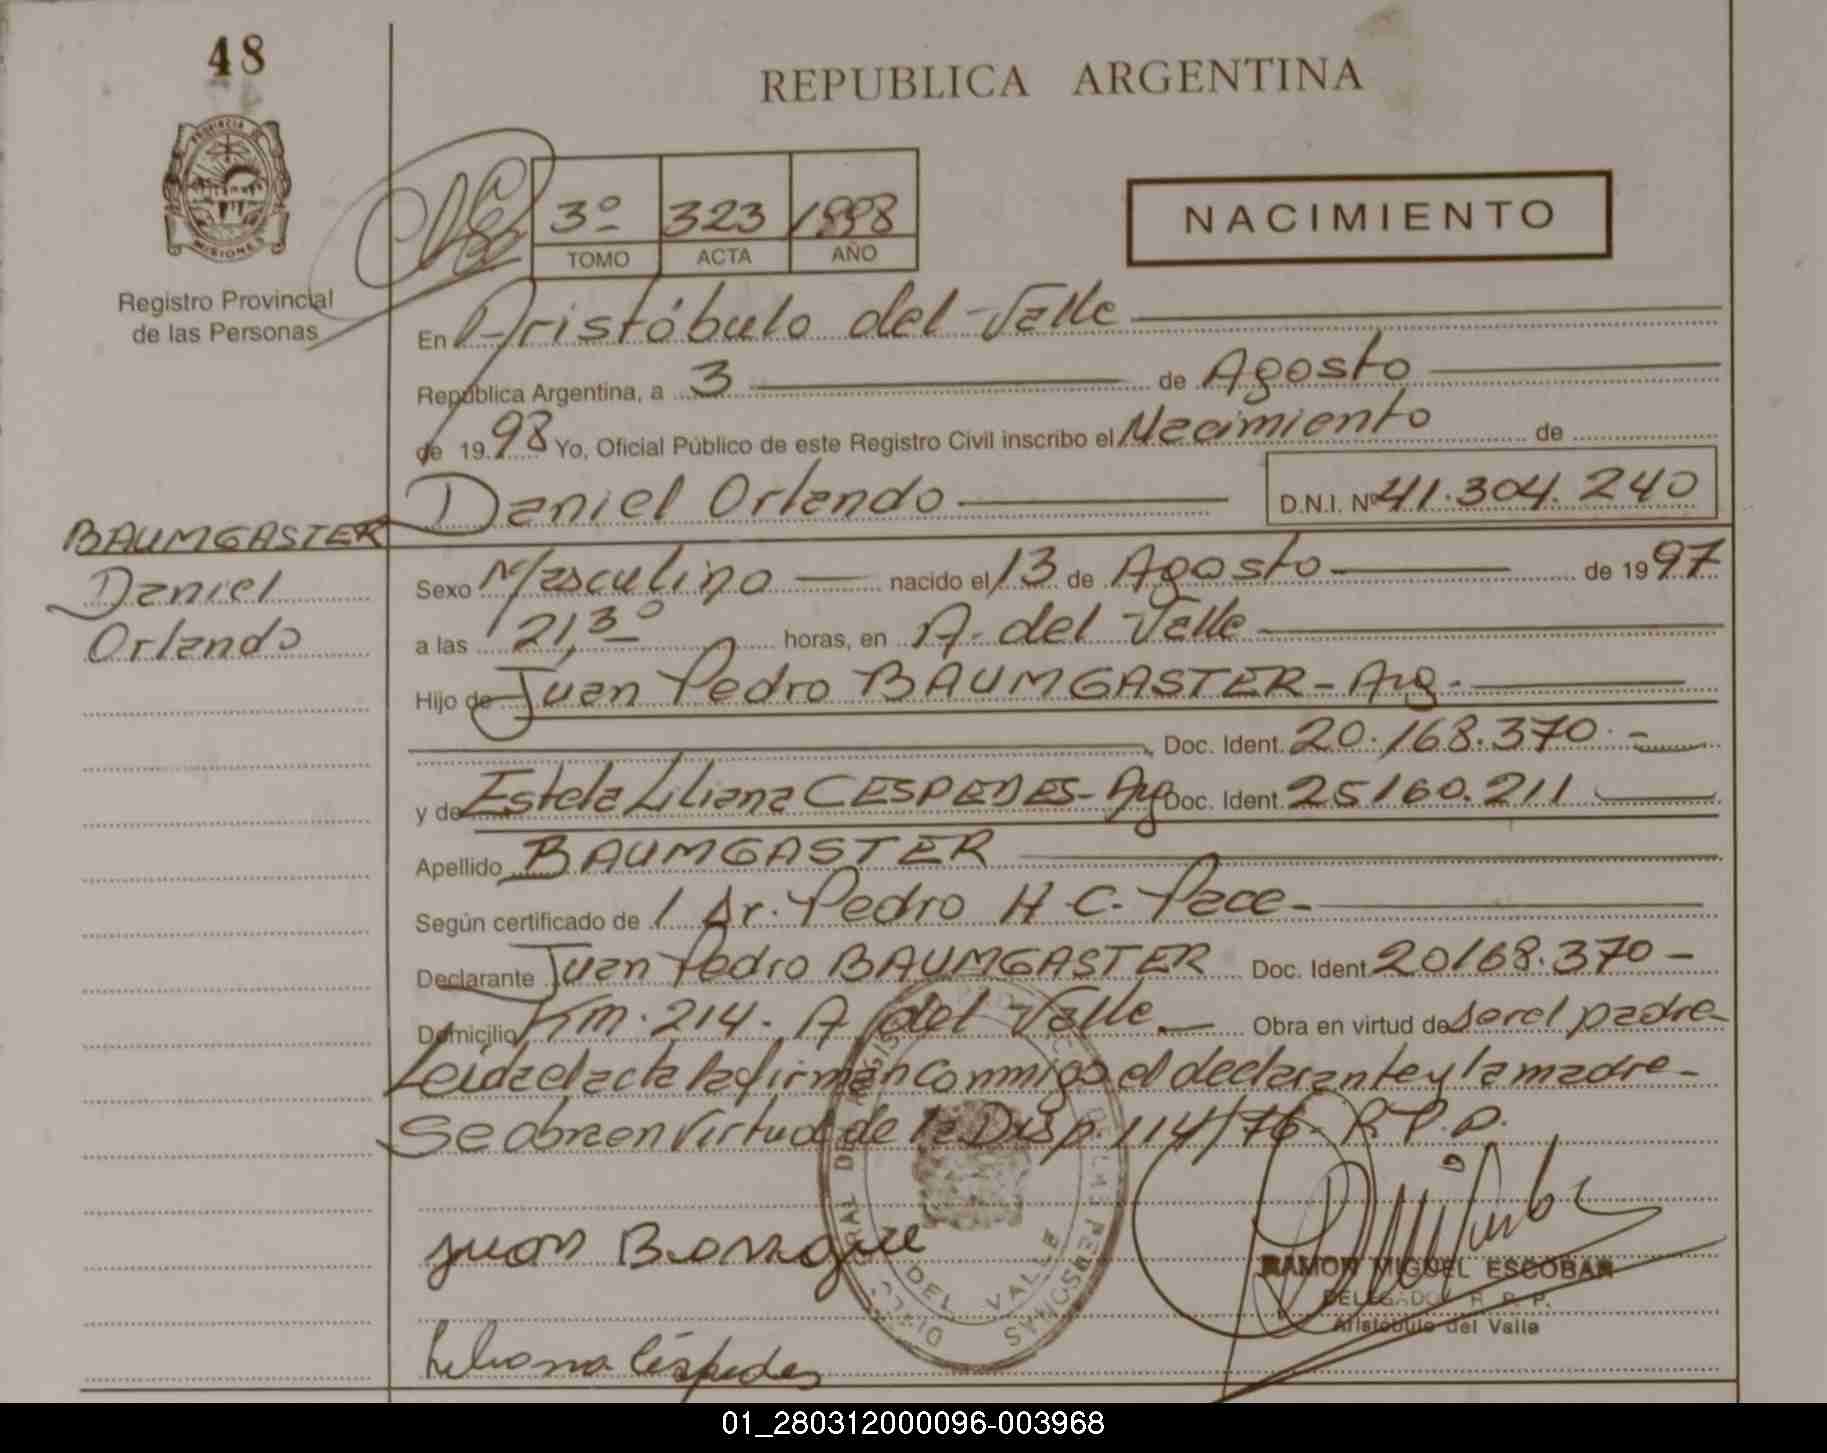 48
REPUBLICA ARGENTINA
PROVINCIA DE
MISIONES
3º 323 1998
TOMO ACTA AÑO
NACIMIENTO
Registro Provincial
de las Personas
En Aristóbulo del Valle
República Argentina, a 3 de Agosto
de 1998 Yo, Oficial Público de este Registro Civil inscribo el Nacimiento de
Daniel Orlando D.N.I. Nº 41.304.240
BAUMGASTER
Daniel
Orlando
Sexo Masculino nacido el 13 de Agosto de 1997
a las 21,3º horas, en A. del Valle
Hijo de Juan Pedro BAUMGASTER - Arg.
Doc. Ident. 20.168.370.-
y de Estela Liliana CESPEDES - Arg Doc. Ident. 25160.211
Apellido BAUMGASTER
Según certificado de Dr. Pedro H. C. Pace-
Declarante Juan Pedro BAUMGASTER Doc. Ident. 20168.370-
Domicilio Km. 214. A del Valle. Obra en virtud de ser el padre-
Leida el acta la firman conmigo el declarante y la madre-
Se obra en virtud de la Disp. 114/76- R.P.P.
DEL VALLE
juan
RAMON MIGUEL ESCOBAR
DELEGADO R. P. P.
Aristóbulo del Valle
Liliana Céspedes
01_280312000096-003968